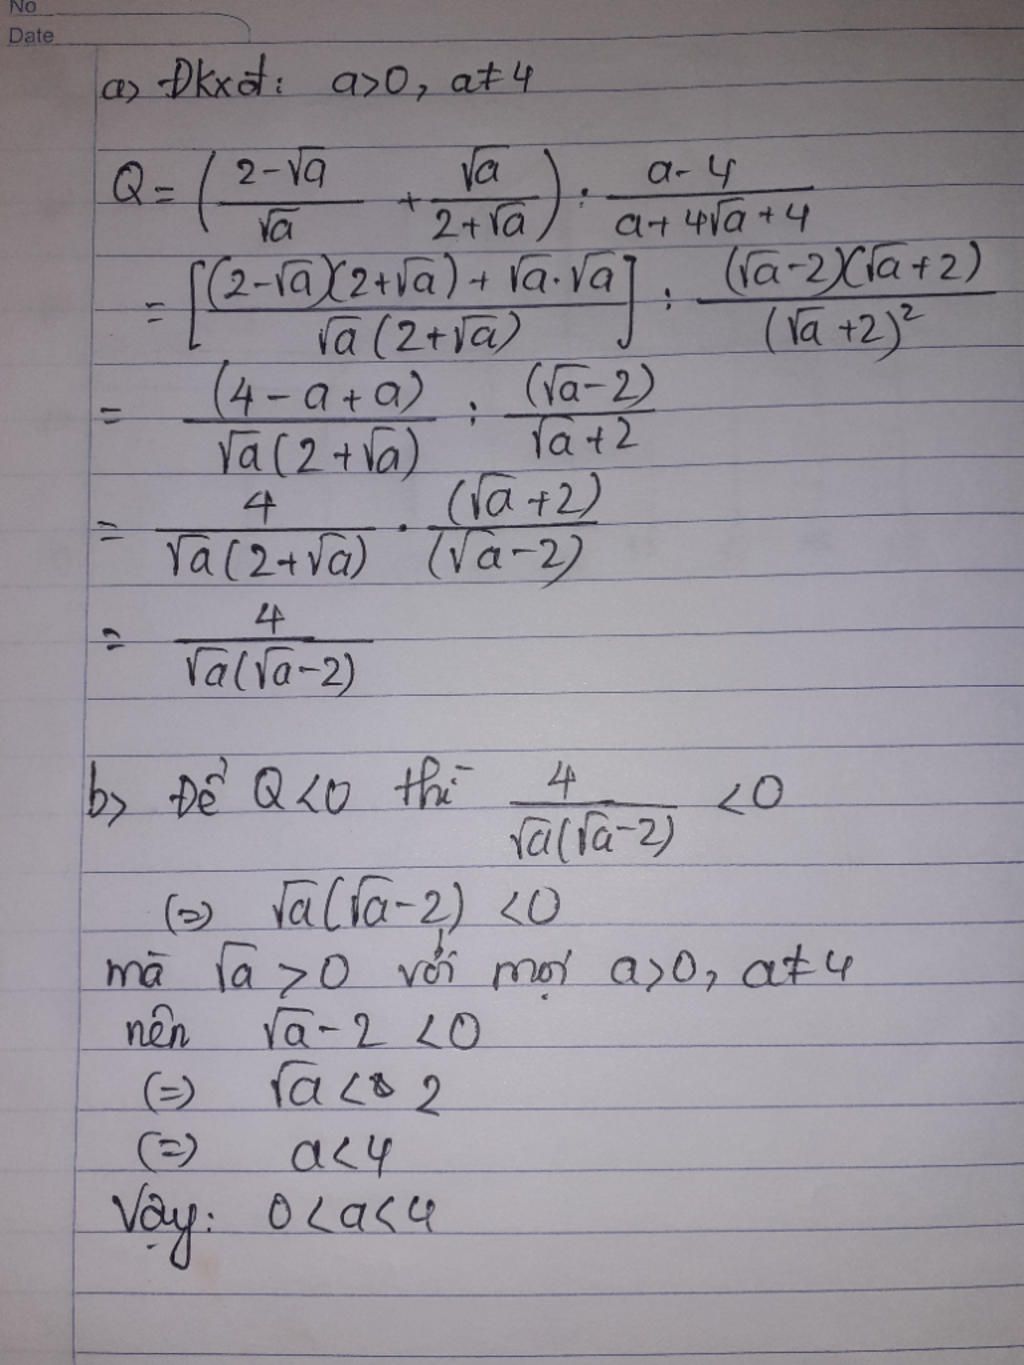 No
Date
a> Đkxđ: a>0, a≠4
Q = ( (2-√a)/√a + √a/(2+√a) ) : (a-4)/(a+4√a+4)
= [ ((2-√a)(2+√a) + √a.√a)/(√a(2+√a)) ] : ((√a-2)(√a+2))/((√a+2)²)
= (4-a+a)/(√a(2+√a)) : (√a-2)/(√a+2)
= 4/(√a(2+√a)) . (√a+2)/(√a-2)
= 4/(√a(√a-2))
b> Để Q<0 thì 4/(√a(√a-2)) <0
(=) √a(√a-2) <0
mà √a >0 với mọi a>0, a≠4
nên √a-2 <0
(=) √a < 2
(=) a<4
Vậy: 0<a<4